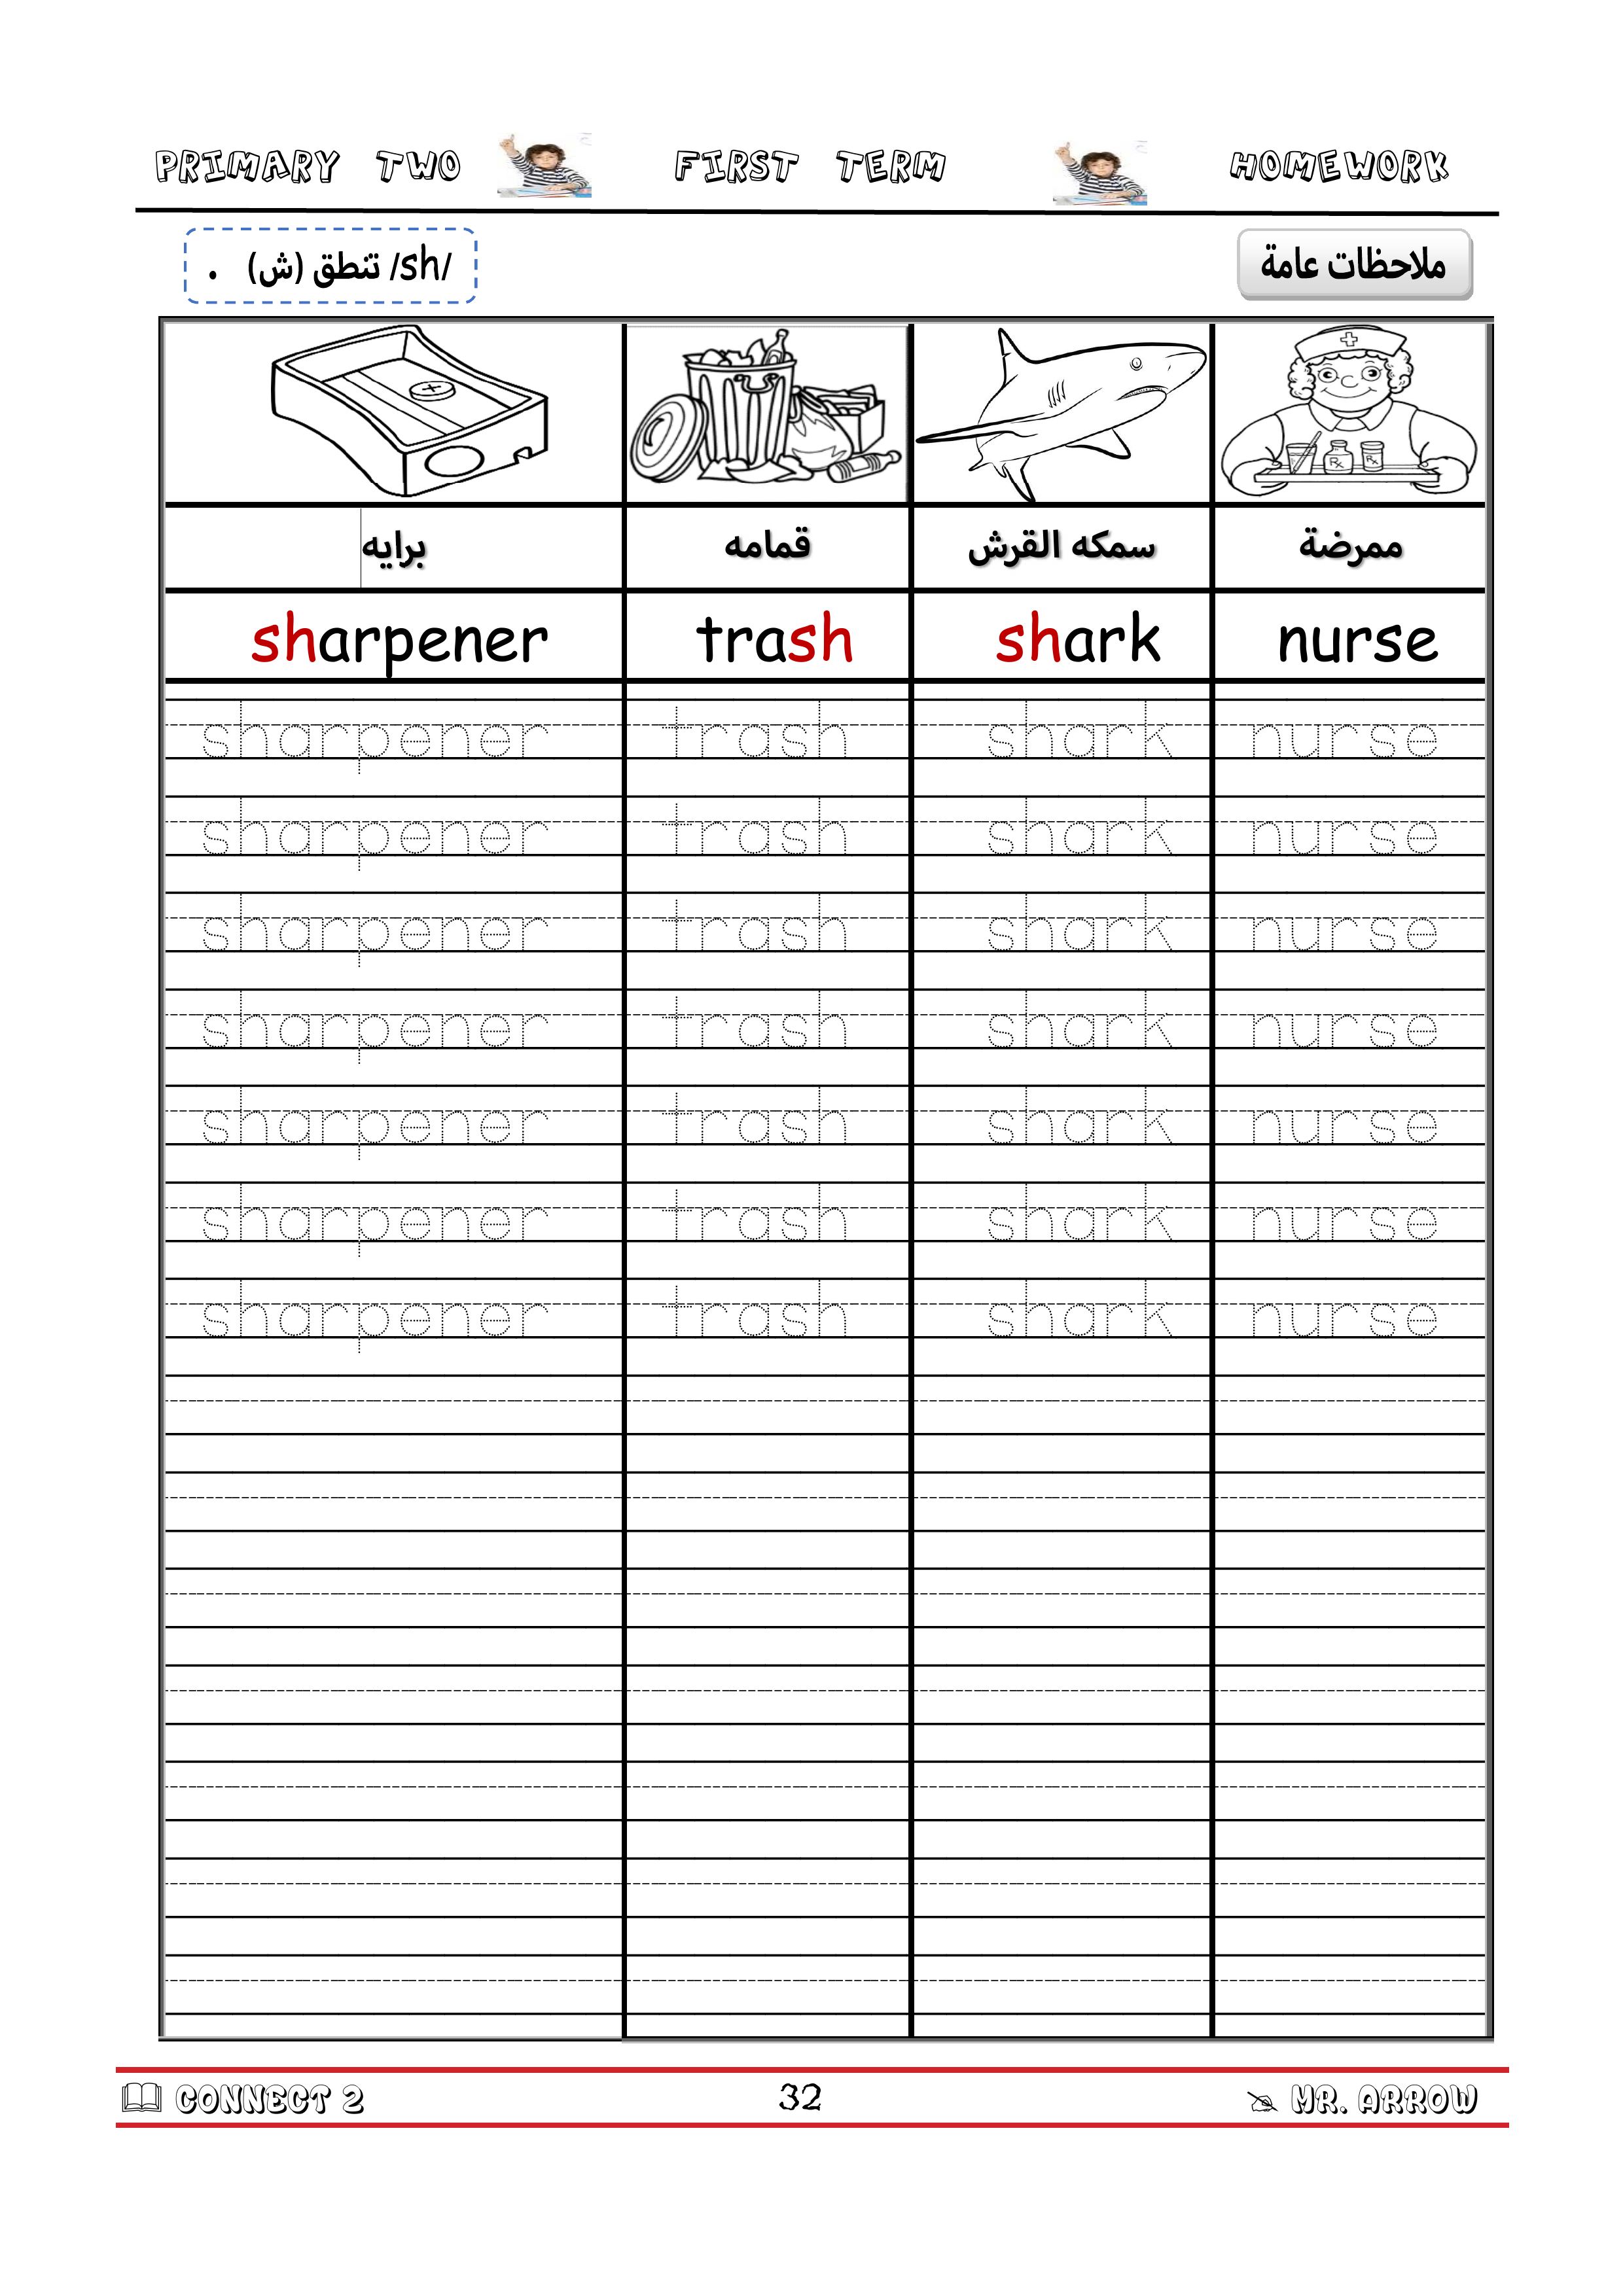 PRIMARY TWO FIRST TERM HOMEWORK
/sh/ تنطق (ش) . ملاحظات عامة
برايه قمامه سمكه القرش ممرضة
sharpener trash shark nurse
sharpener trash shark nurse
sharpener trash shark nurse
sharpener trash shark nurse
sharpener trash shark nurse
sharpener trash shark nurse
sharpener trash shark nurse
sharpener trash shark nurse
CONNECT 2 32 MR. ARROW